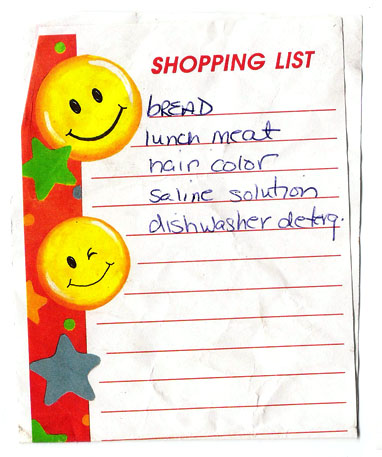 SHOPPING LIST
BREAD
lunch meat
hair color
saline solution
dishwasher deterg.